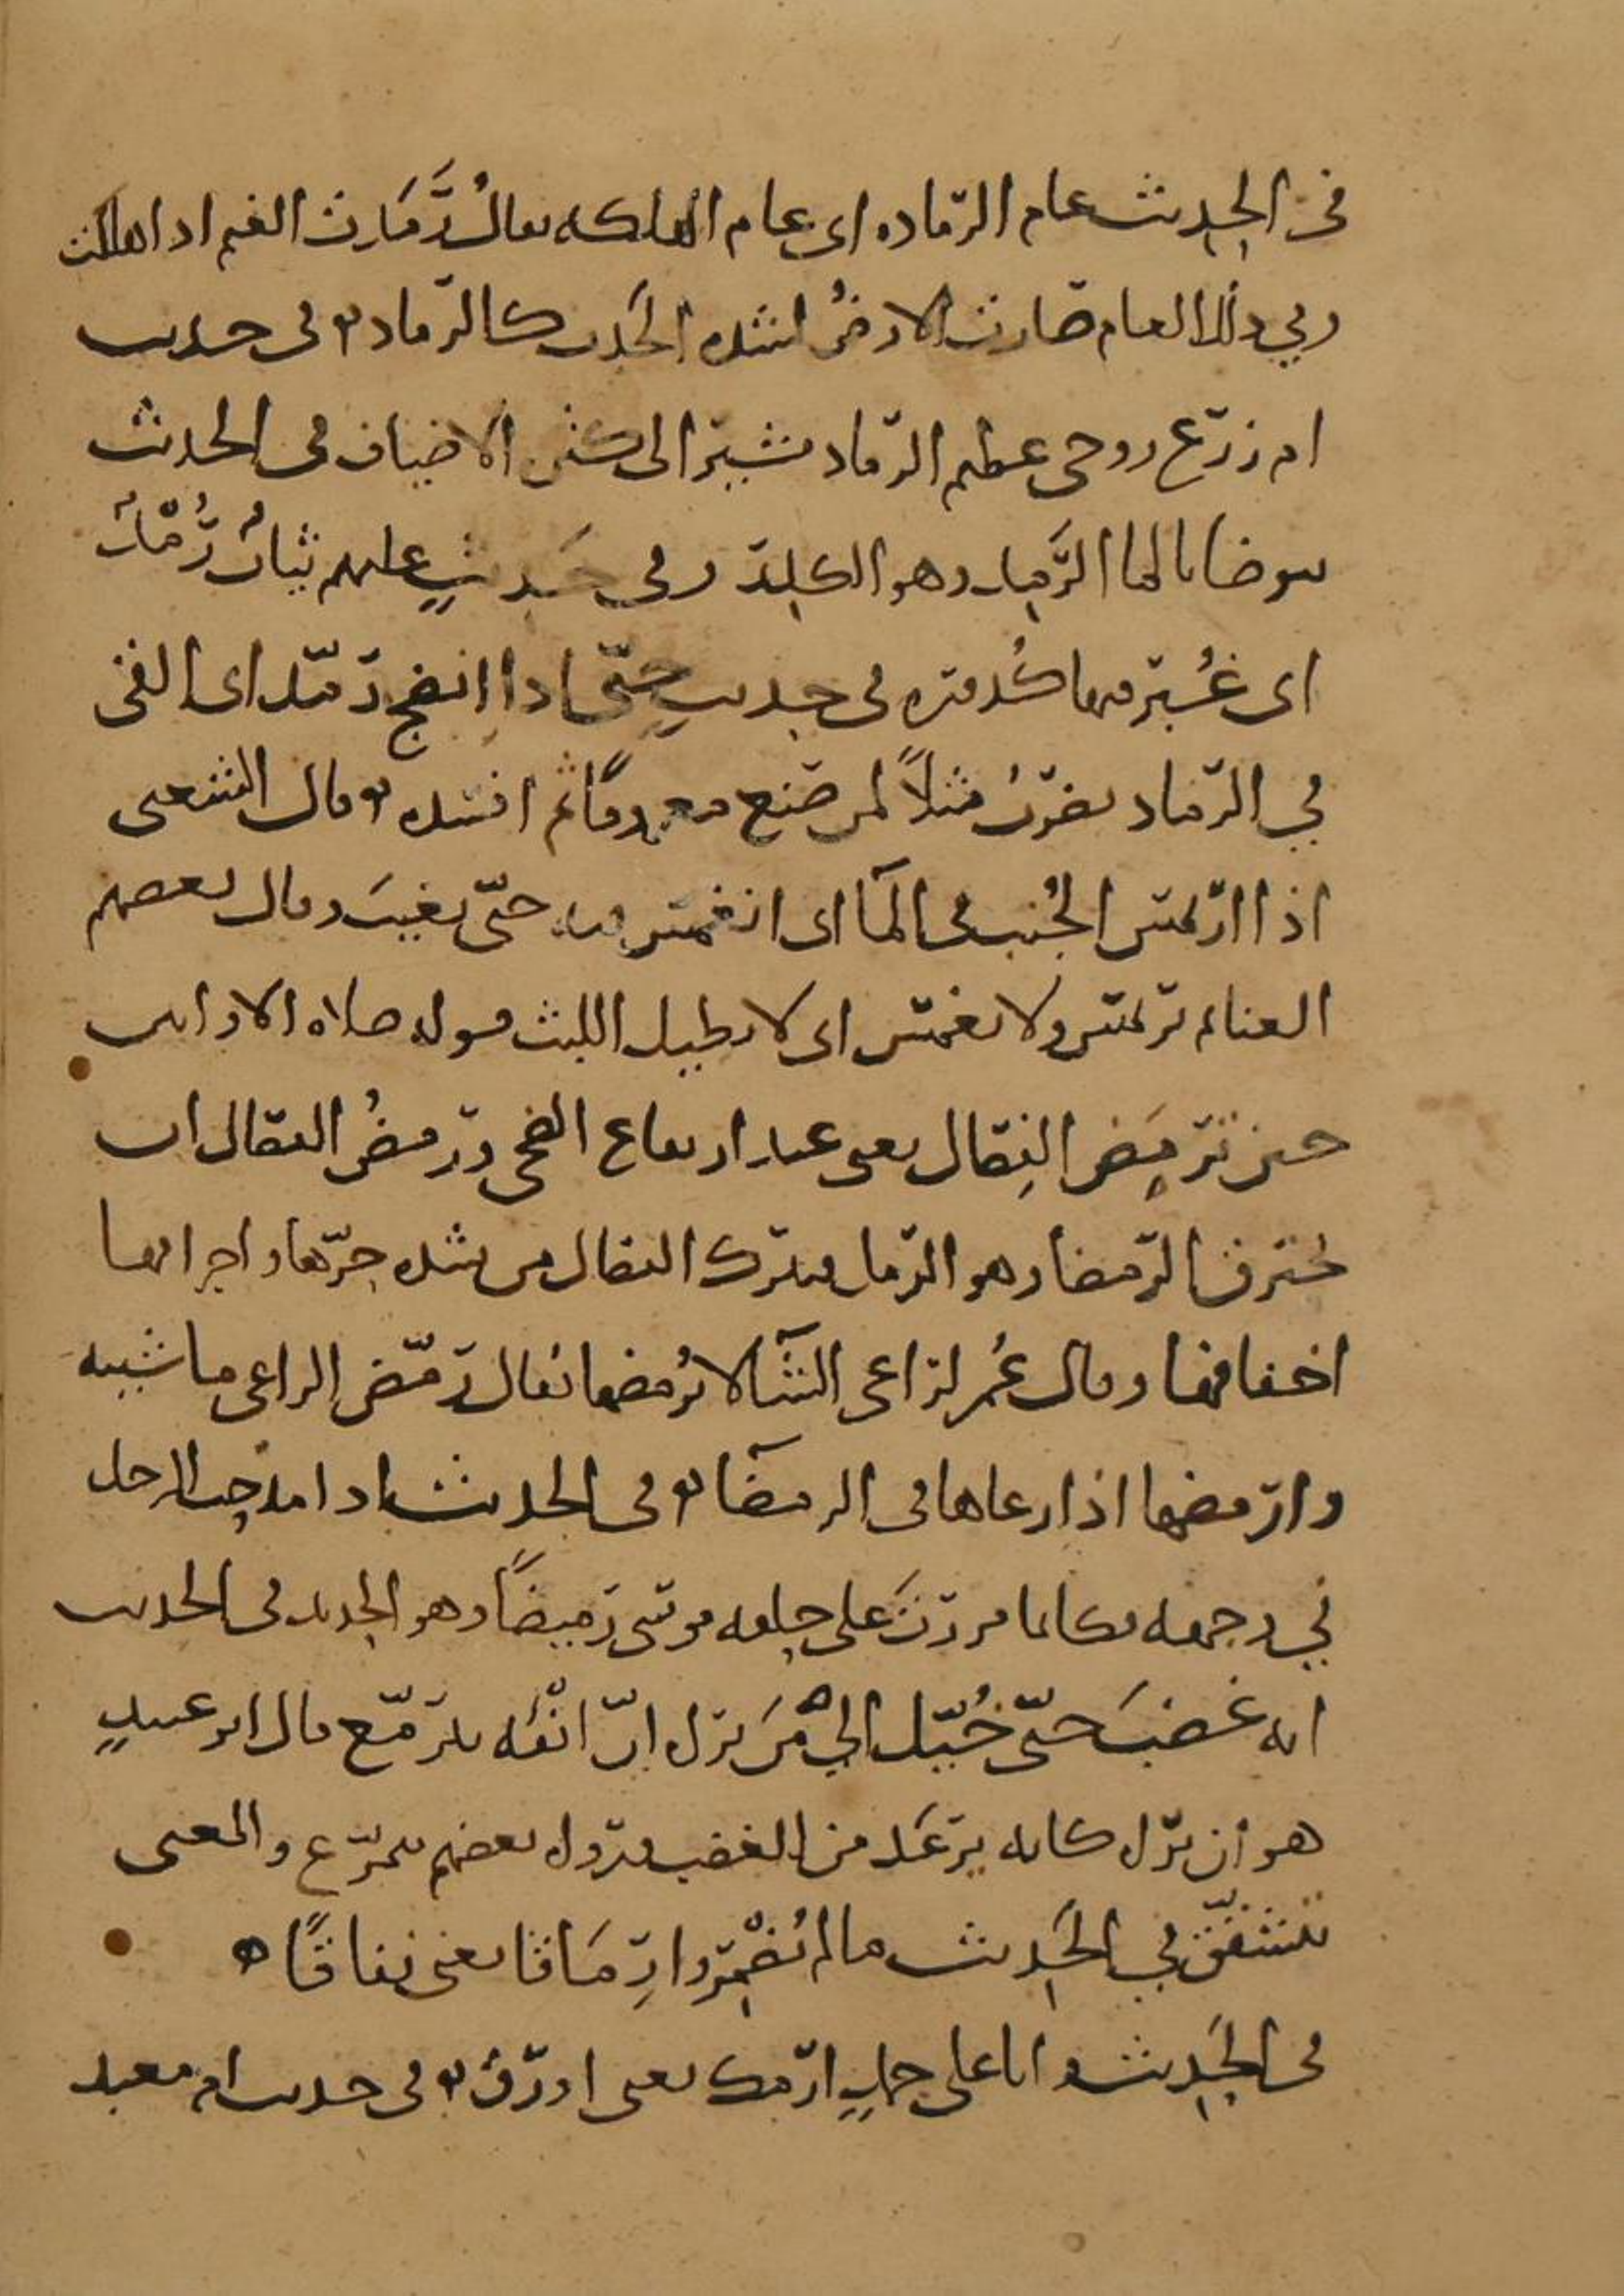 في الحديث عام الرماده اى عام الهلكه يقال رَمَدَت الغنم اذا هلكت
وفي ذلك العام صارت الارضُ لشده الجَدب كالرماد وفى حديث
ام زرع زوجى عظيم الرماد تشير الى كثره الاضياف فى الحديث
يتوضا بالما الرَّمِد وهو الكدر وفى حديثٍ عليهم ثيابٌ رُمْدٌ
اى غُبْر فيها كُدره فى حديثٍ حتّى اذا انضج رمّد اى القى
في الرماد يضرب مثلاً لمن صنع معروفًا ثم افسده وقال الشعبى
اذا ارتمس الجُنب فى المآ اى انغمس فيه حتّى يغيبَ وقال بعضهم
الصائم يرتمس ولا يغتمس اى لا يطيل اللبث قوله صلاه الاوابين
حين ترمَض الفِصال يعنى عند ارتفاع الضحى ورمضُ الفصال ان
تحترق الرمضا وهو الرمل فتبرك الفصال من شده حرّها واحراقها
اخفافها وقال عُمر لراعى الشآ لا تُرمضها يقال رمّض الراعى ماشيته
وارمضها اذا رعاها فى الرمضآ وفى الحديث اذا مدحت الرجل
في وجهه فكانما مررتَ على حلقه موسى رَميضًا وهو الحديد فى الحديث
انه غضبَ حتّى خُيّل الىّ مَن يرى انّ انفَه يترمّع قال ابو عبيدٍ
هو ان ترى كانه يرعَد من الغضب ويروى بعضهم يتمزّع والمعنى
يتشقّق في الحَديث ما لم تُضمِروا رِمَاقًا يعنى نفاقًا ه
فى الحَديث وانا على جملٍ ارمك يعنى اورق وفى حديث ام معبد